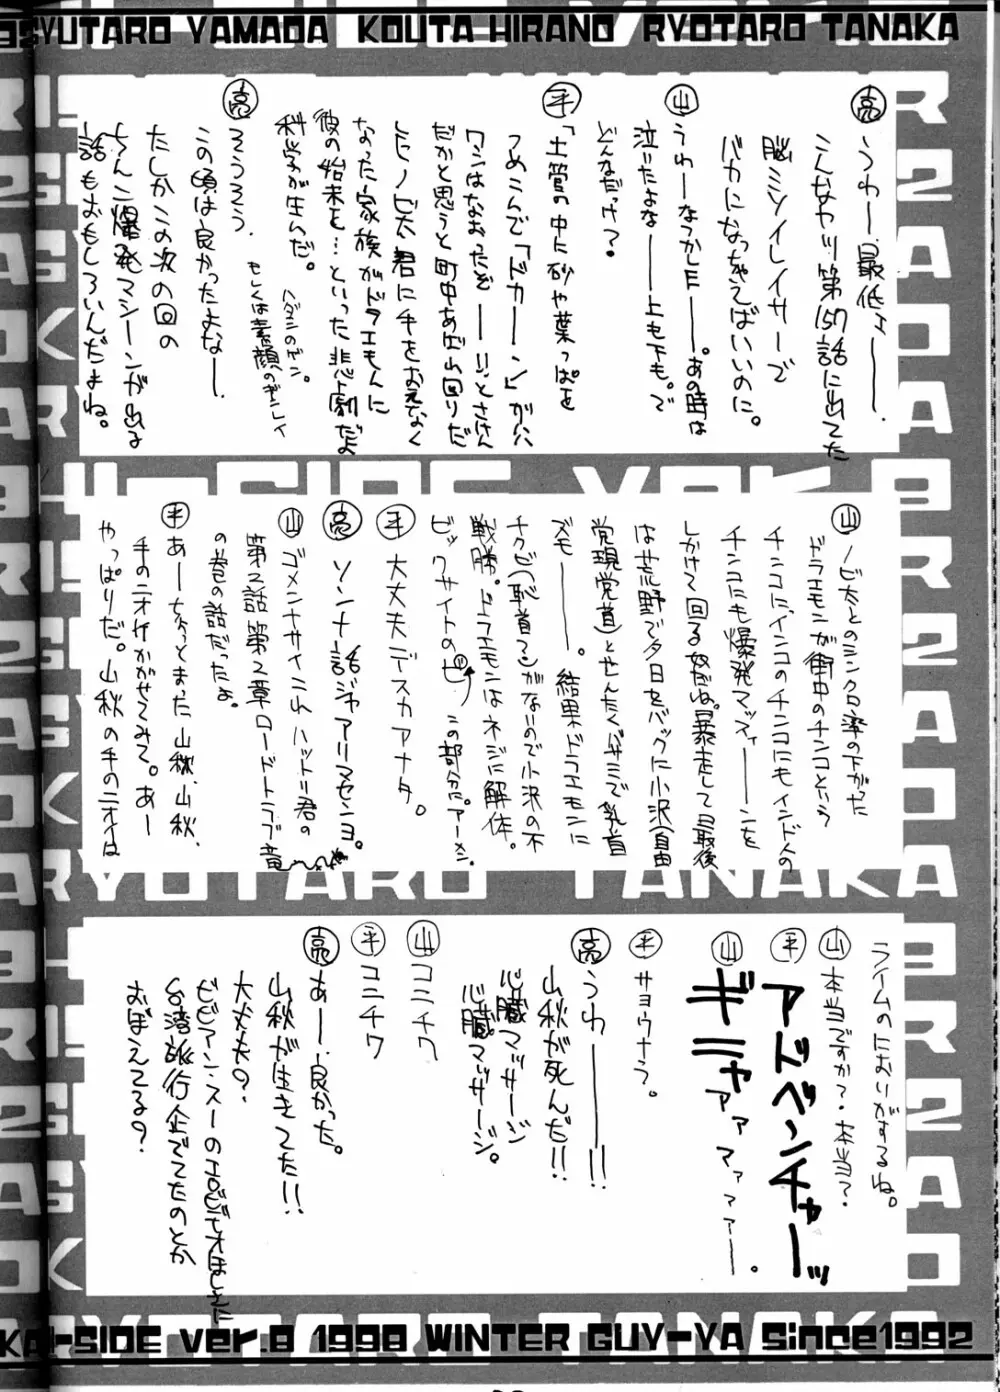 SYUTARO YAMADA KOUTA HIRANO RYOTARO TANAKA
高 うわー、最低ェー。
こんなヤツ第157話に出てた
脳ミソイレイサーで
バカになっちゃえばいいのに。
山 うわーなつかしEー。あの時は
泣いたよなー上も下も。で
どんなだっけ?
平 「土管の中に砂や葉っぱを
つめこんで「ドカーン」が八
ワシはなおったぞー!!とさけん
だかと思うと町中あばれ回りだ
したノビ太君に手をおえなく
なった家族がドラえもんに
彼の始末を…といった悲劇だよ
科学が生んだ。
高 そうそう。
この頃は良かったよなー。
もしくは素顔の
たしかこの次の回の
ちんこ爆発マシーンが出る
話もおもしろいんだよね。
山 ノビ太とのシンクロ率の下がった
ドラエモンが街中のチンコという
チンコに、インコのチンコにもインド人の
チンコにも爆発マッスィーンを
しかけて回る奴だね。暴走して最後
は荒野で夕日をバックに小沢(自由
党現党首)とせんたくバサミで乳首
ズモー。結果ドラエモンに
チクビ(恥首マン)がないので小沢の不
戦勝。ドラエモンはネジに解体。
ビックサイトのピ この部分に。アーメン。
平 大丈夫デスカアナタ。
高 ソンナ話ジャアリマセンヨ。
山 ゴメンナサイこれハットリ君の
第2話第2章ロードトラブ竜
の巻の話だったよ。
平 あーちょっとまった山秋、山秋、
手のニオイかがせてみて。あー
やっぱりだ。山秋の手のニオイは
ライムのにおいがするね。
山 本当ですか?本当?
平 アドベンチャーッ
山 ギニャァァァマァァァァー。
平 サヨウナラ。
高 うわー!!
山秋が死んだ!!
心臓マッサージ
心臓マッサージ。
山 コニチワ
平 コニチワ
高 あー、良かった。
山秋が生きてた!!
大丈夫?
ビビアン・スーのエロビデオほしさに
台湾旅行企ててたのとか
おぼえてる?
KAI-SIDE ver.8 1998 WINTER GUY-YA Since1992